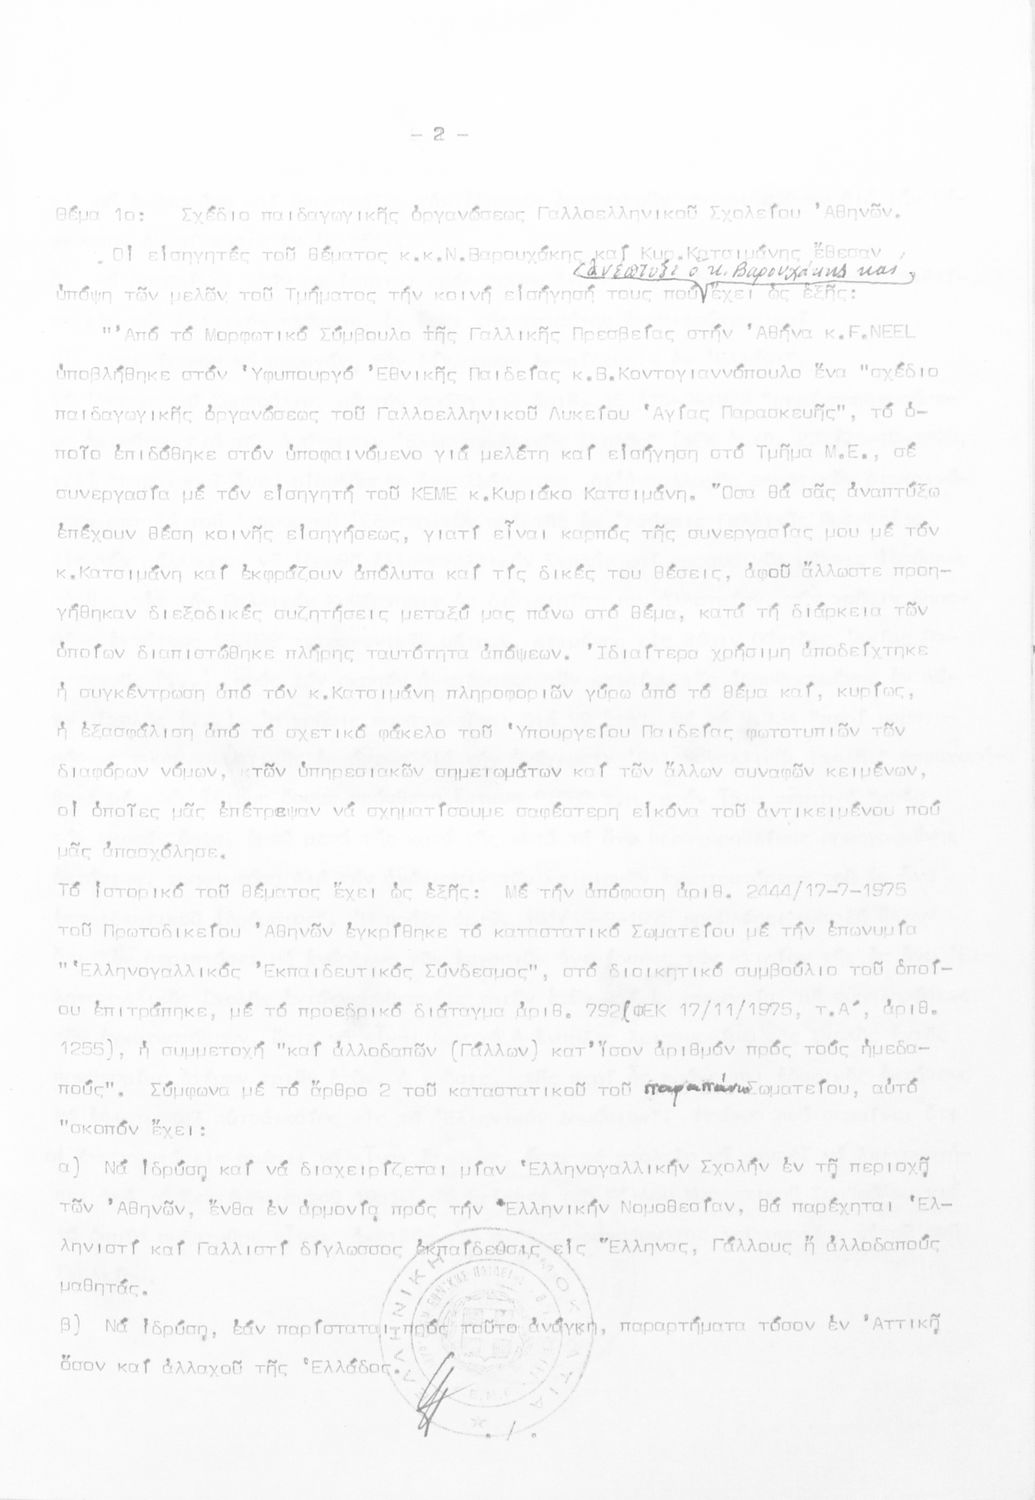 - 2 -
Θέμα 1ο: Σχέδιο παιδαγωγικῆς ὀργανώσεως Γαλλοελληνικοῦ Σχολείου Ἀθηνῶν.
Οἱ εἰσηγητές τοῦ θέματος κ.κ.Ν.Βαρουχάκης καί Κυρ.Κατσιμάνης ἔθεσαν
(ἀνέπτυξε ὁ κ. Βαρουχάκης και,
ὑπόψη τῶν μελῶν τοῦ Τμήματος τήν κοινή εἰσήγησή τους πού ἔχει ὡς ἑξῆς:
"Ἀπό τό Μορφωτικό Σύμβουλο τῆς Γαλλικῆς Πρεσβείας στήν Ἀθήνα κ.F.NEEL
ὑποβλήθηκε στόν Ὑφυπουργό Ἐθνικῆς Παιδείας κ.Β.Κοντογιαννόπουλο ἕνα "σχέδιο
παιδαγωγικῆς ὀργανώσεως τοῦ Γαλλοελληνικοῦ Λυκείου Ἁγίας Παρασκευῆς", τό ὁ-
ποῖο ἐπιδόθηκε στόν ὑποφαινόμενο γιά μελέτη καί εἰσήγηση στό Τμῆμα Μ.Ε., σέ
συνεργασία μέ τόν εἰσηγητή τοῦ ΚΕΜΕ κ.Κυριάκο Κατσιμάνη. Ὅσα θά σᾶς ἀναπτύξω
ἐπέχουν θέση κοινῆς εἰσηγήσεως, γιατί εἶναι καρπός τῆς συνεργασίας μου μέ τόν
κ.Κατσιμάνη καί ἐκφράζουν ἀπόλυτα καί τίς δικές του θέσεις, ἀφοῦ ἄλλωστε προη-
γήθηκαν διεξοδικές συζητήσεις μεταξύ μας πάνω στό θέμα, κατά τή διάρκεια τῶν
ὁποίων διαπιστώθηκε πλήρης ταυτότητα ἀπόψεων. Ἰδιαίτερα χρήσιμη ἀποδείχτηκε
ἡ συγκέντρωση ἀπό τόν κ.Κατσιμάνη πληροφοριῶν γύρω ἀπό τό θέμα καί, κυρίως,
ἡ ἐξασφάλιση ἀπό τό σχετικό φάκελο τοῦ Ὑπουργείου Παιδείας φωτοτυπιῶν τῶν
διαφόρων νόμων, τῶν ὑπηρεσιακῶν σημειωμάτων καί τῶν ἄλλων συναφῶν κειμένων,
οἱ ὁποῖες μᾶς ἐπέτρεψαν νά σχηματίσουμε σαφέστερη εἰκόνα τοῦ ἀντικειμένου πού
μᾶς ἀπασχόλησε.
Τό ἱστορικό τοῦ θέματος ἔχει ὡς ἑξῆς: Μέ τήν ἀπόφαση ἀριθ. 2444/17-7-1975
τοῦ Πρωτοδικείου Ἀθηνῶν ἐγκρίθηκε τό καταστατικό Σωματείου μέ τήν ἐπωνυμία
"Ἑλληνογαλλικός Ἐκπαιδευτικός Σύνδεσμος", στό διοικητικό συμβούλιο τοῦ ὁποί-
ου ἐπιτράπηκε, μέ τό προεδρικό διάταγμα ἀριθ. 792(ΦΕΚ 17/11/1975, τ.Α΄, ἀριθ.
1255), ἡ συμμετοχή "καί ἀλλοδαπῶν (Γάλλων) κατ'ἴσον ἀριθμόν πρός τούς ἡμεδα-
πούς". Σύμφωνα μέ τό ἄρθρο 2 τοῦ καταστατικοῦ τοῦ παραπάνω Σωματείου, αὐτό
"σκοπόν ἔχει:
α) Νά ἱδρύσῃ καί νά διαχειρίζεται μίαν Ἑλληνογαλλικήν Σχολήν ἐν τῇ περιοχῇ
τῶν Ἀθηνῶν, ἔνθα ἐν ἁρμονίᾳ πρός τήν Ἑλληνικήν Νομοθεσίαν, θά παρέχηται Ἑλ-
ληνιστί καί Γαλλιστί δίγλωσσος ἐκπαίδευσις εἰς Ἕλληνας, Γάλλους ἤ ἀλλοδαπούς
μαθητάς.
β) Νά ἱδρύσῃ, ἐάν παρίσταται πρός τοῦτο ἀνάγκη, παραρτήματα τόσον ἐν Ἀττικῇ
ὅσον καί ἀλλαχοῦ τῆς Ἑλλάδος.
ΕΛΛΗΝΙΚΗ ΔΗΜΟΚΡΑΤΙΑ
./.